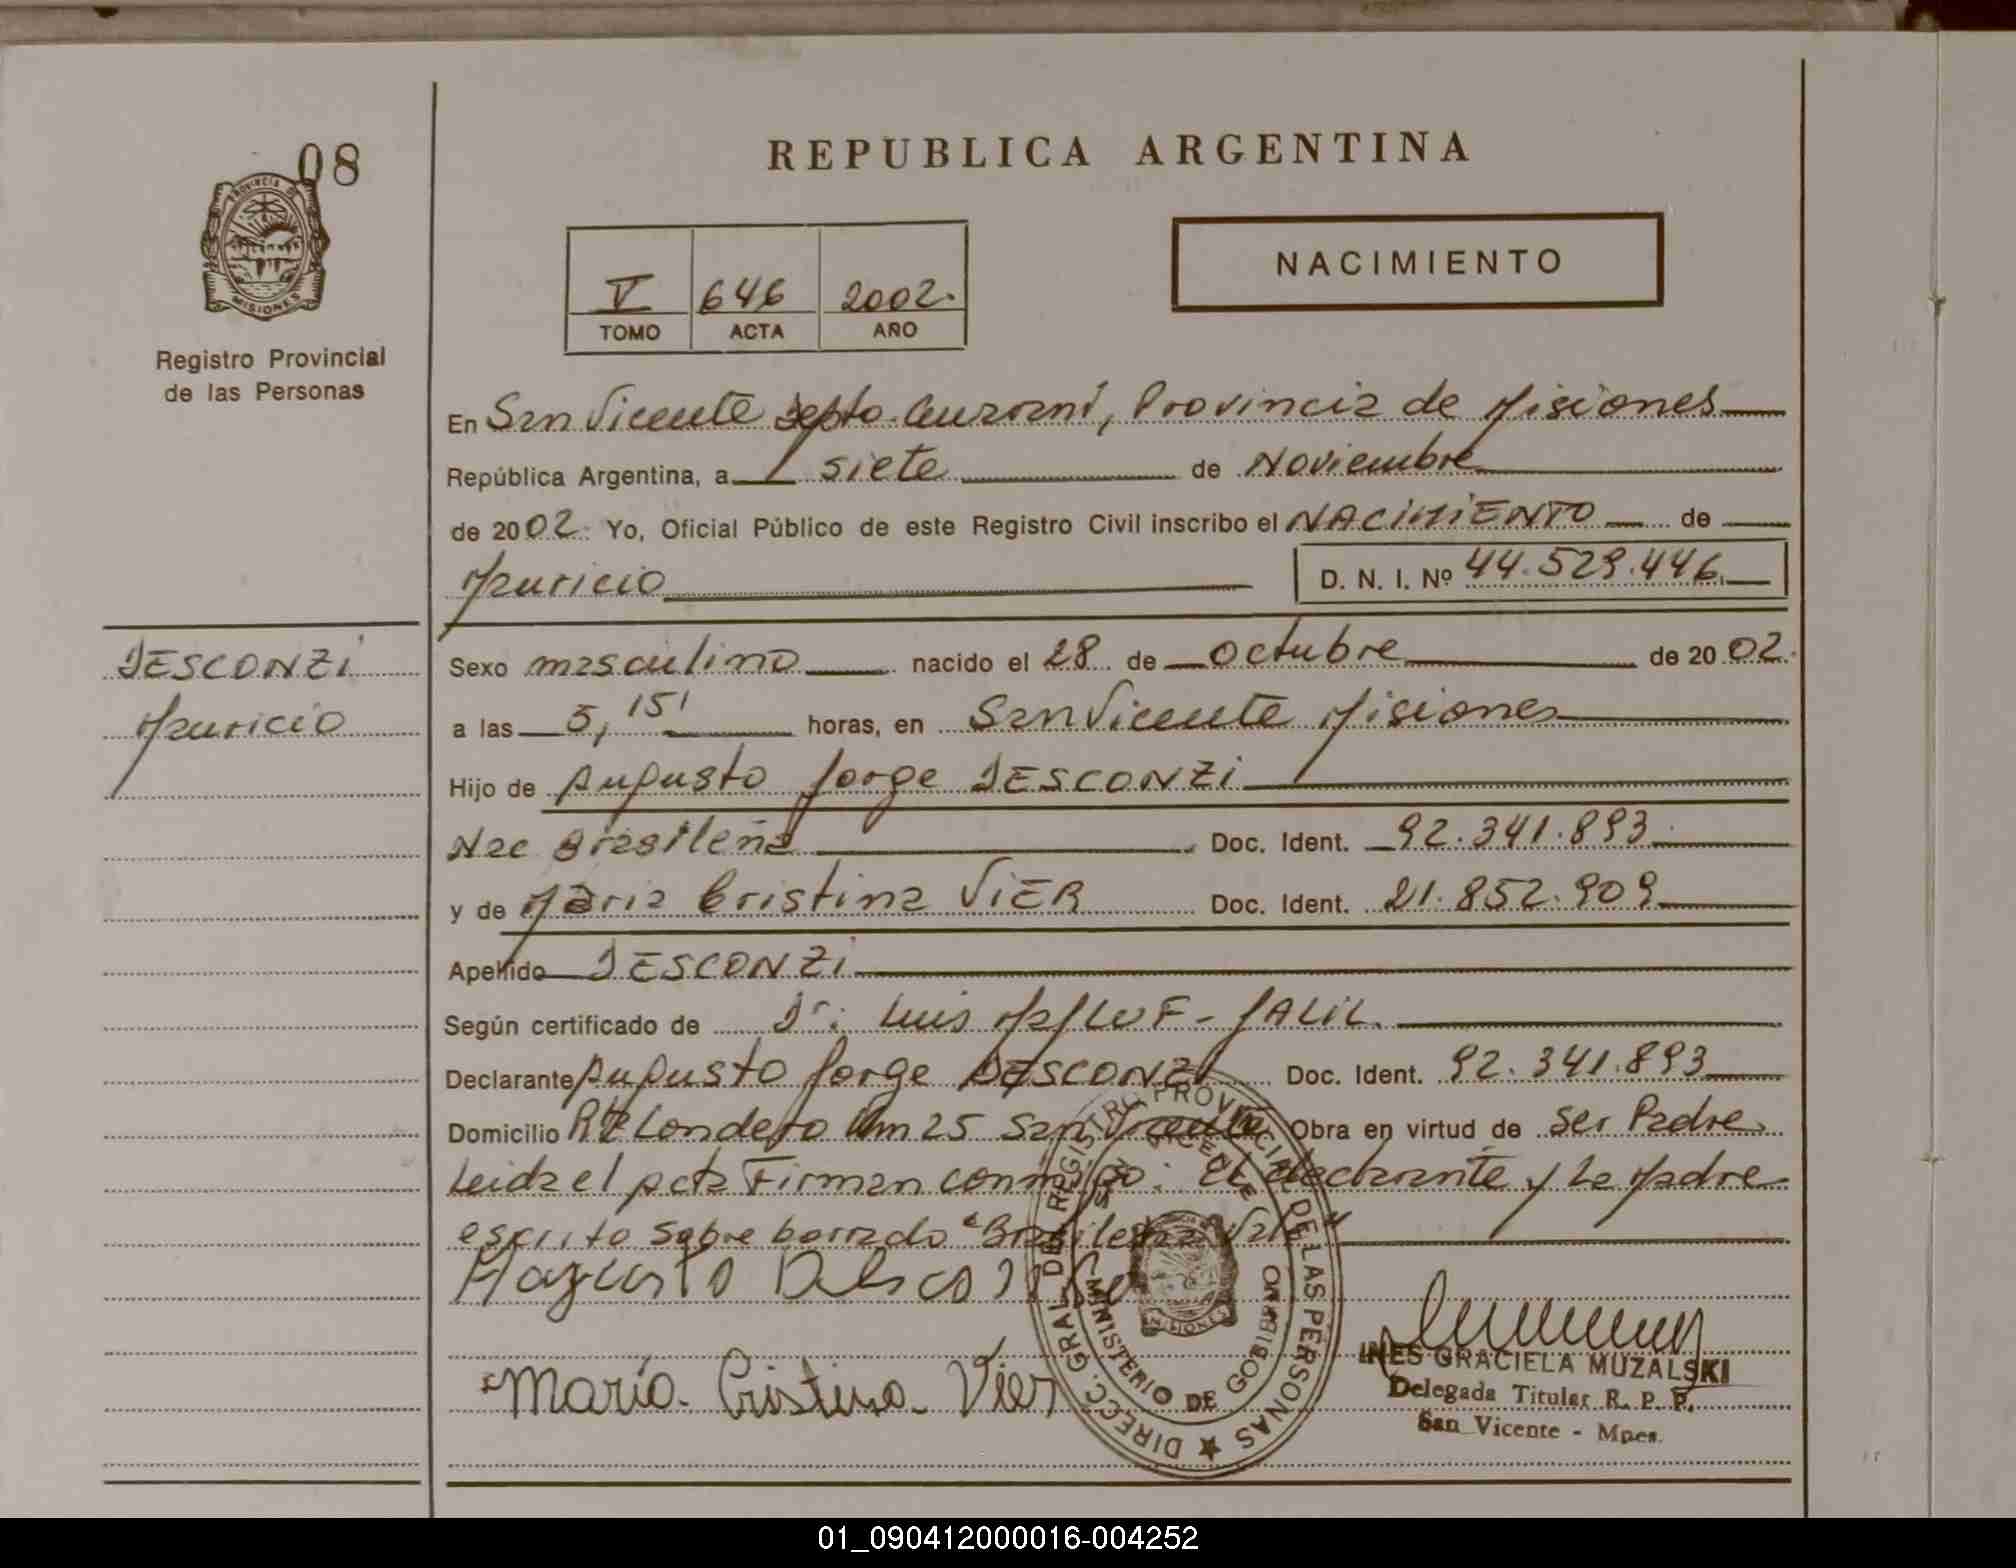 08
PROVINCIA DE
MISIONES
Registro Provincial
de las Personas
REPUBLICA ARGENTINA
V 646 2002.
TOMO ACTA AÑO
NACIMIENTO
En San Vicente Depto. Guaraní, Provincia de Misiones
República Argentina, a siete de Noviembre
de 2002. Yo, Oficial Público de este Registro Civil inscribo el NACIMIENTO de
Mauricio D. N. I. Nº 44.529.446.
DESCONZI
Mauricio
Sexo masculino nacido el 28 de octubre de 2002.
a las 5,15' horas, en San Vicente Misiones
Hijo de Augusto Jorge DESCONZI
Nac Brasileña Doc. Ident. 92.341.893
y de María Cristina VIER Doc. Ident. 21.852.909
Apellido DESCONZI
Según certificado de Dr. Luis MALLUF-JALIL.
Declarante Augusto Jorge DESCONZI Doc. Ident. 92.341.893
Domicilio Londero Km 25 San Vicente Obra en virtud de ser Padre
Leida el acta Firman conmigo: El declarante y La Madre
escrito sobre borrado "Brasileña Vale"
María Cristina Vier
DIRECC. GRAL. DEL REGISTRO PROVINCIAL DE LAS PERSONAS
SAN VICENTE
MINISTERIO DE GOBIERNO
MISIONES
INES GRACIELA MUZALSKI
Delegada Titular R. P. P.
San Vicente - Mnes.
01_090412000016-004252